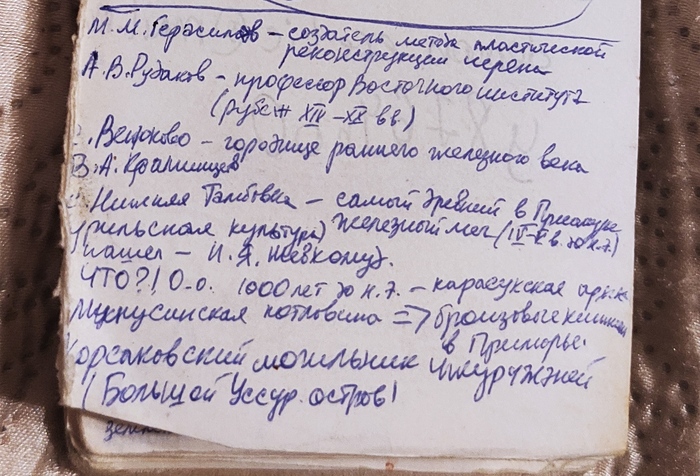 М.М. Герасимов – создатель метода пластической
реконструкции черепа
А.В. Рудаков – профессор Восточного института
(рубеж XIX–XX вв.)
с. Венюково – городище раннего железного века
В.А. Краминцев
с. Нижняя Тамбовка – самый древний в Приамурье
(урильская культура) железный меч (
нашел – И.Я. Шевкомуд.
ЧТО?! О_о. 1000 лет до н.э. – карасукская
Минусинская котловина => бронзовые
в Приморье.
Корсаковский могильник чжурчжэней
(Большой Уссур. остров)